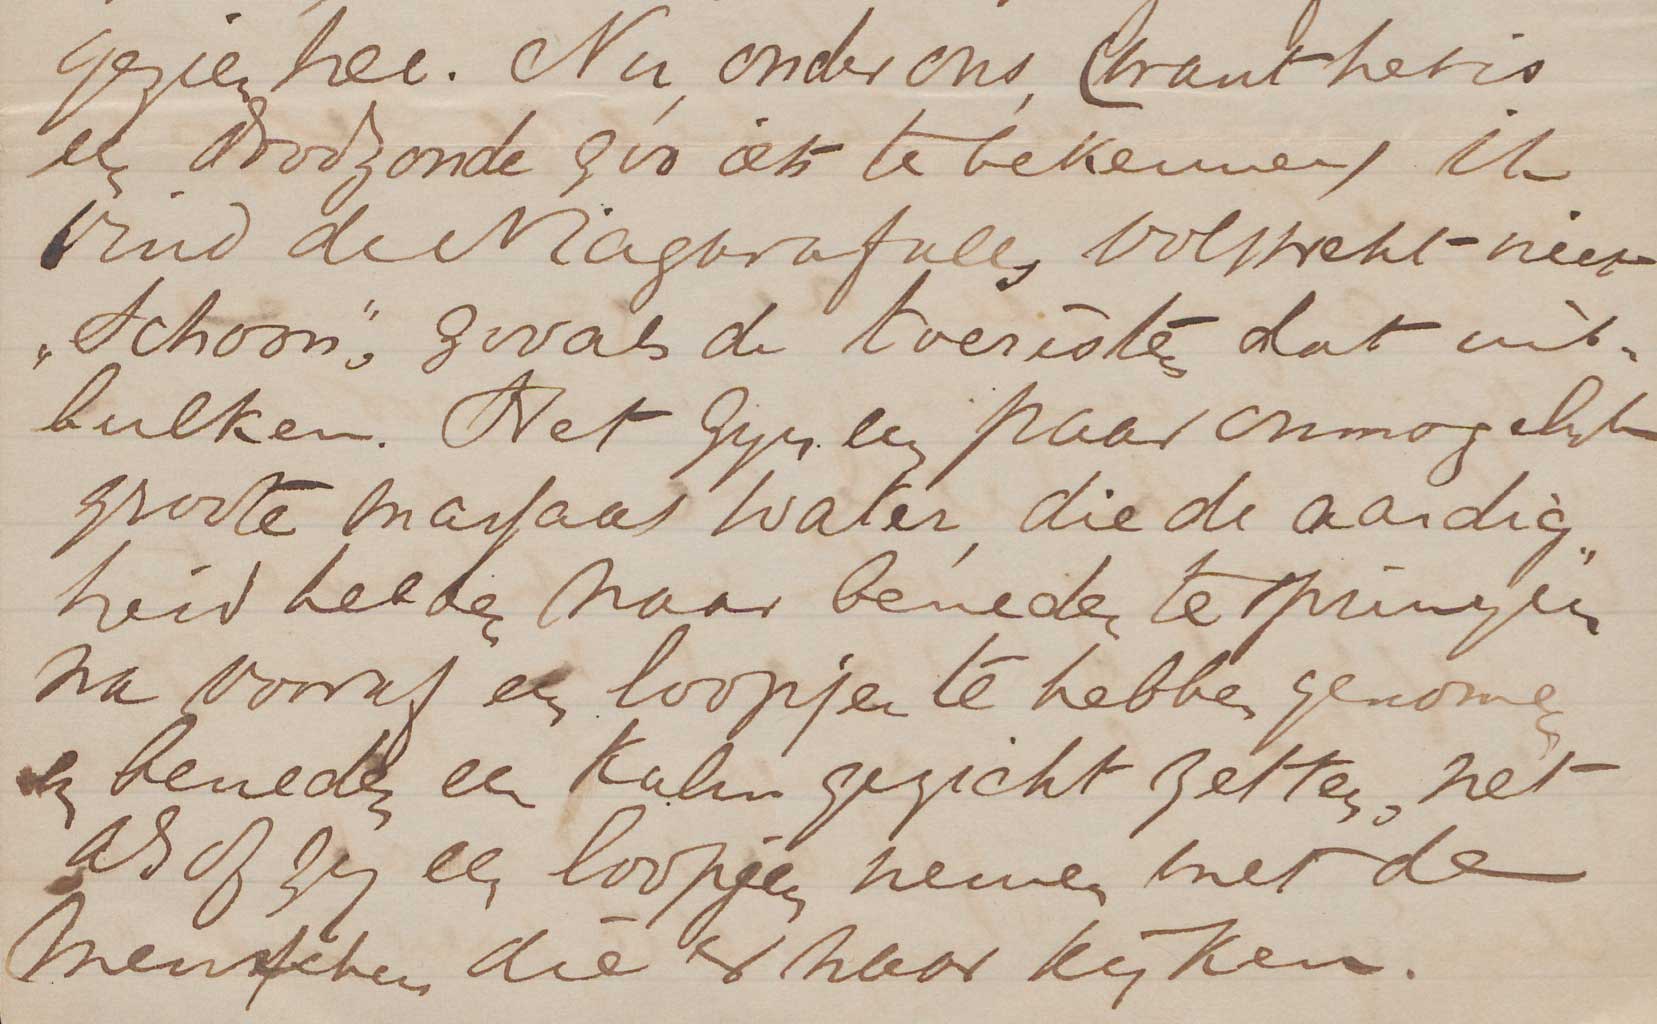 gezien heb. Nu, onder ons, (want het is
een doodzonde zoo iets te bekennen) ik
vind de Niagarafalls volstrekt niet
„schoon", zooals de toeristen dat uit-
bulken. Het zijn een paar onmogelijk
groote massaas water, die de aardig„
heid hebben naar beneden te springen
na vooraf een loopjen te hebben genomen
en beneden een kalm gezicht zetten, net
alsof zij een loopjen nemen met de
menschen die er naar kijken.